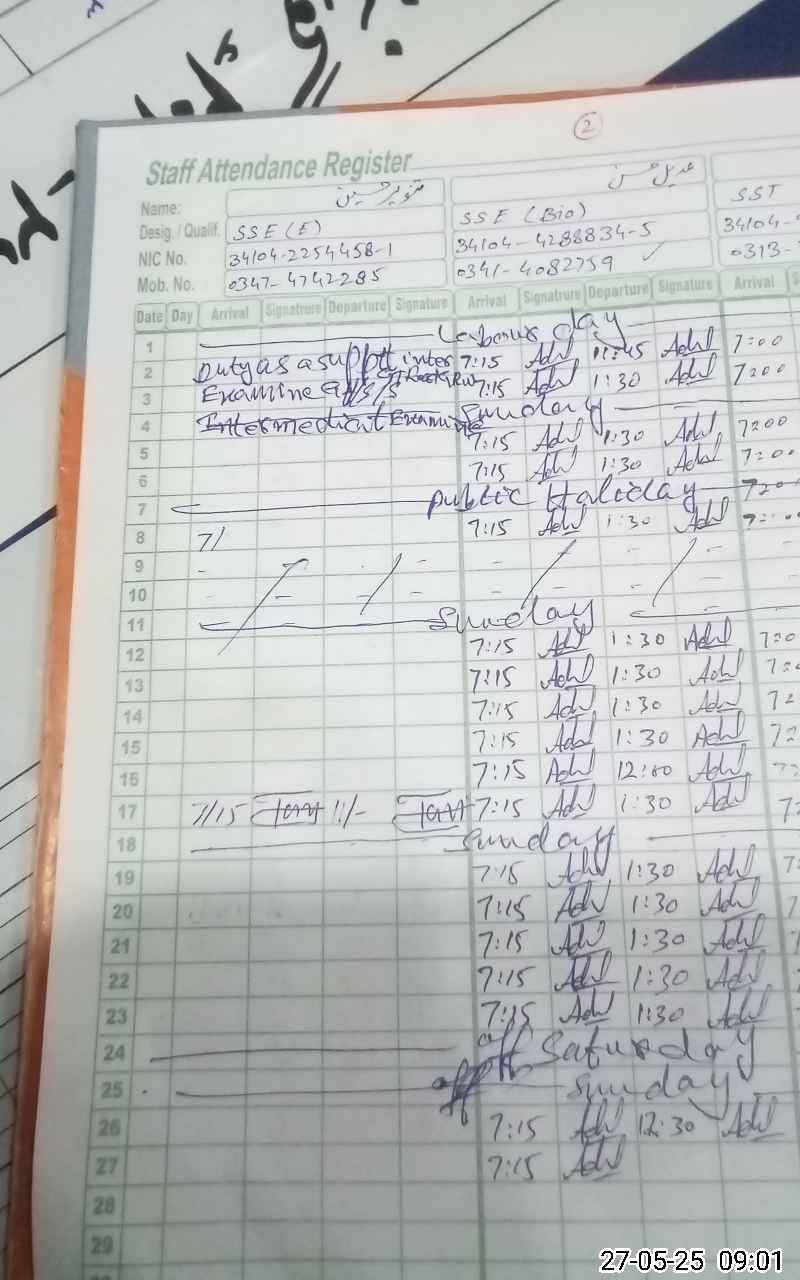 2
Staff Attendance Register
Name: تنویر حسین عدیل حسن
Desig. / Qualif. SSE (E) SSE (Bio) SST
NIC No. 34104-2254458-1 34104-4288834-5 34104-
Mob. No. 0347-4742285 0341-4082759 0313-
Date Day Arrival Signatrure Departure Signature Arrival Signatrure Departure Signature Arrival
1 Labour day
2 Duty as a suptt inter 7:15 Adil 11:45 Adil 7:00
3 Examine 7:15 Adil 1:30 Adil 7:00
4 Sunday
5 7:15 Adil 1:30 Adil 7:00
6 7:15 Adil 1:30 Adil 7:0
7 Public Haliday 7:0
8 7/ 7:15 Adil 1:30 Adil 7:00
9
10
11 Sunday
12 7:15 Adil 1:30 Adil 7:0
13 7:15 Adil 1:30 Adil 7:
14 7:15 Adil 1:30 Adil 7:
15 7:15 Adil 1:30 Adil 7:
16 7:15 Adil 12:00 Adil 7:
17 7/15 11/- 7:15 Adil 1:30 Adil 7:
18 Sunday
19 7:15 Adil 1:30 Adil 7:
20 7:15 Adil 1:30 Adil
21 7:15 Adil 1:30 Adil
22 7:15 Adil 1:30 Adil
23 7:15 Adil 1:30 Adil
24 off Saturday
25 off Sunday
26 7:15 Adil 12:30 Adil
27 7:15 Adil
28
29
27-05-25 09:01